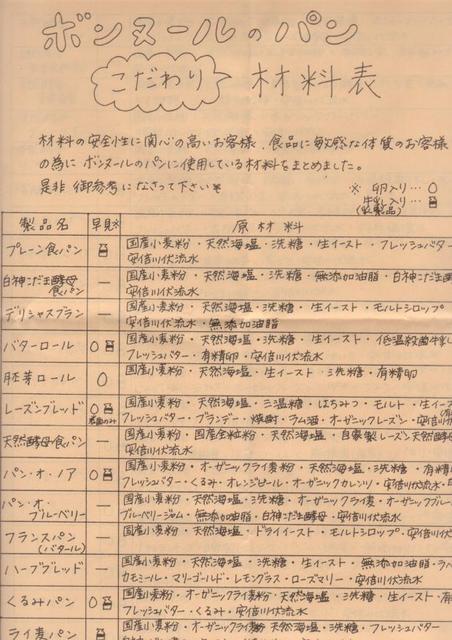 ボンヌールのパン
こだわり 材料表
材料の安全性に関心の高いお客様、食品に敏感な体質のお客様
の為に ボンヌールのパンに使用している材料をまとめました。
是非 御参考になさって下さい
※ 卵入り…○
牛乳入り…
(乳製品)
製品名 早見※ 原材料
プレーン食パン 国産小麦粉・天然海塩・洗糖・生イースト・フレッシュバター
安倍川伏流水
白神こだま酵母食パン — 国産小麦粉・天然海塩・洗糖・無添加油脂・白神こだま酵母
安倍川伏流水
デリシャスブラン — 国産小麦粉・天然海塩・洗糖・生イースト・モルトシロップ
安倍川伏流水・無添加油脂
バターロール ○ 国産小麦粉・天然海塩・洗糖・生イースト・低温殺菌牛乳
フレッシュバター・有精卵・安倍川伏流水
胚芽ロール ○ 国産小麦粉・天然海塩・生イースト・洗糖・有精卵
レーズンブレッド ○ 国産小麦粉・天然海塩・三温糖・はちみつ・モルト・生イースト
フレッシュバター・ブランデー・焼酎・ラム酒・オーガニックレーズン・安倍川
天然酵母食パン — 国産小麦粉・国産全粒粉・天然海塩・自家製レーズン天然酵母
安倍川伏流水
パン・オ・ノア ○ 国産小麦粉・オーガニックライ麦粉・天然海塩・洗糖・有精
フレッシュバター・くるみ・オレンジピール・オーガニックカレンツ・安倍川伏流
パン・オ・ブルーベリー — 国産小麦粉・天然海塩・洗糖・オーガニックライ麦・オーガニックブルー
ブルーベリージャム・無添加油脂・白神こだま酵母・安倍川伏流水
フランスパン(バタール) — 国産小麦粉・天然海塩・ドライイースト・モルトシロップ・安倍川伏
ハーブブレッド — 国産小麦粉・天然海塩・洗糖・生イースト・無添加油脂・ラベ
カモミール・マリーゴールド・レモングラス・ローズマリー・安倍川伏流水
くるみパン ○ 国産小麦粉・オーガニックライ麦粉・天然海塩・洗糖・生イースト・有
フレッシュバター・くるみ・安倍川伏流水
ライ麦パン 国産小麦粉・オーガニックライ麦粉・天然海塩・洗糖・生イースト・フレッシュ